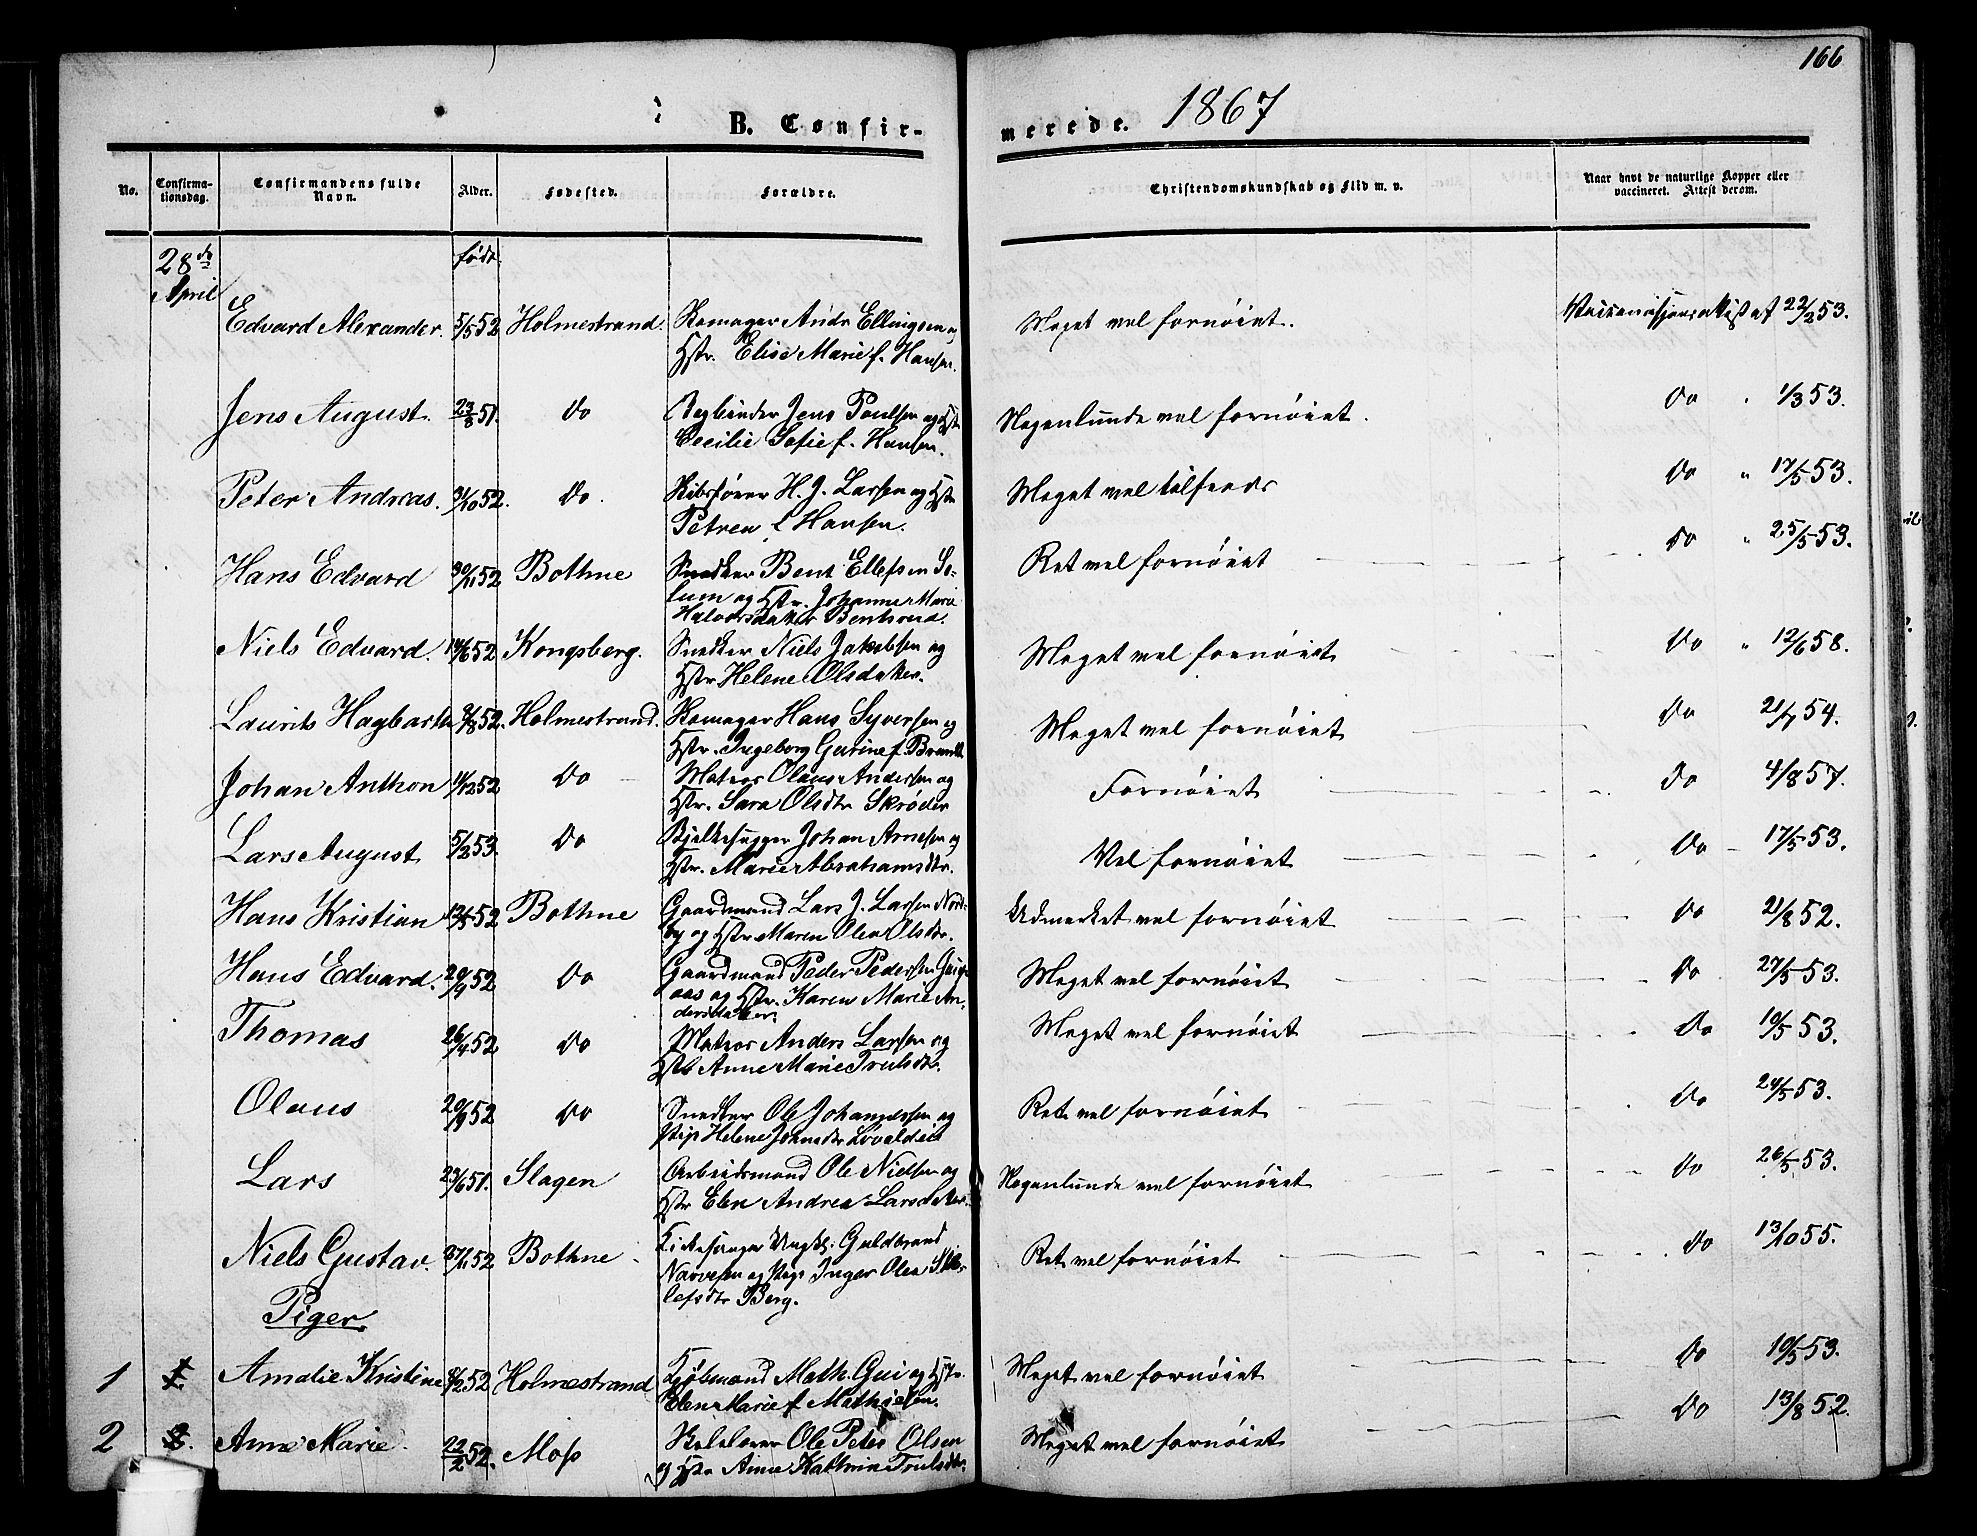 166
B. Confirmerede. 1867
No. Confirmationsdag. Confirmandens fulde Navn. Alder. Fødested. Forældre. Christendomskundskab og Flid m. v. Naar havt de naturlige Kopper eller vaccineret. Attest derom.
28de April født
Edvard Alexander. 5/5 52 Holmestrand. Andr Ellingsen og Meget vel fornøiet. 22/2 53.
Hstr. Elise Marie f. Hansen.
Jens August. 23/8 51. Do Jens Poulsen og Hstr Nogenlunde vel fornøiet. Do 1/3 53.
Cecilie Sofie f. Hansen.
Peter Andreas. 31/10 52. Do. H. J. Larsen og Hstr Meget vel tilfreds Do " 17/5 53.
Petrea f Hansen.
Hans Edvard 30/11 52 Bothne Snedker Bent Ellefsen So- Ret vel fornøiet Do " 25/5 53.
lum og Hstr. Johanne Marie
Halvorsdatter
Niels Edvard. 14/6 52 Kongsberg. Snedker Niels Jakobsen og Meget vel fornøiet Do " 12/6 58.
Hstr Helene Olsdatter.
Laurits Hagbarth 9/8 52. Holmestrand. Hans Syversen og Meget vel fornøiet Do 21/7 54.
Hstr. Ingeborg Gurine f. Brandt
Johan Anthon 11/12 52 Do Matros Olaus Andersen og Fornøiet Do 4/8 57.
Hstr. Sara Olsdtr Skrøder
Lars August 5/2 53. Do Bjelkehugger Johan Arnesen og Vel fornøiet Do 17/5 53.
Hstr. Marie Abrahamsdtr.
Hans Kristian 12/5 52 Bothne Gaardmand Lars J. Larsen Nord- Udmerket vel fornøiet Do 21/8 52.
by og Hstr Maren Olea Olsdtr.
Hans Edvard. 20/9 52 Do Gaardmand Peder Pedersen Meget vel fornøiet Do 27/5 53.
aas og Hstr. Karen Marie An-
dersdatter.
Thomas 26/4 52 Do Matros Anders Larsen og Meget vel fornøiet Do 10/5 53.
Hstr Anne Marie Trulsdtr.
Olaus 20/9 52 Do Snedker Ole Johannessen og Ret vel fornøiet Do 24/5 53.
Pige Helene
Lars 23/6 51. Slagen Arbeidsmand Ole Nielsen og Nogenlunde vel fornøiet Do 26/5 53.
Hstr Elen Andrea Larsdatter.
Niels Gustav. 27/11 52 Bothne Kirkesanger Ungkl. Guldbrand Ret vel fornøiet Do 13/10 55.
Narvesen og Pige Inger Olea
lefsdtr Berg.
Piger
1 1. Amalie Kristine 8/2 52 Holmestrand Kjøbmand Math. Gui og Hstr. Meget vel fornøiet Do 10/5 53.
Elen Marie f Mathisen.
2 2. Anne Marie 22/2 52. Moss Ole Peter Olsen Meget vel fornøiet Do 13/8 52.
og Hstr Anne Kathrine Trulsdtr.